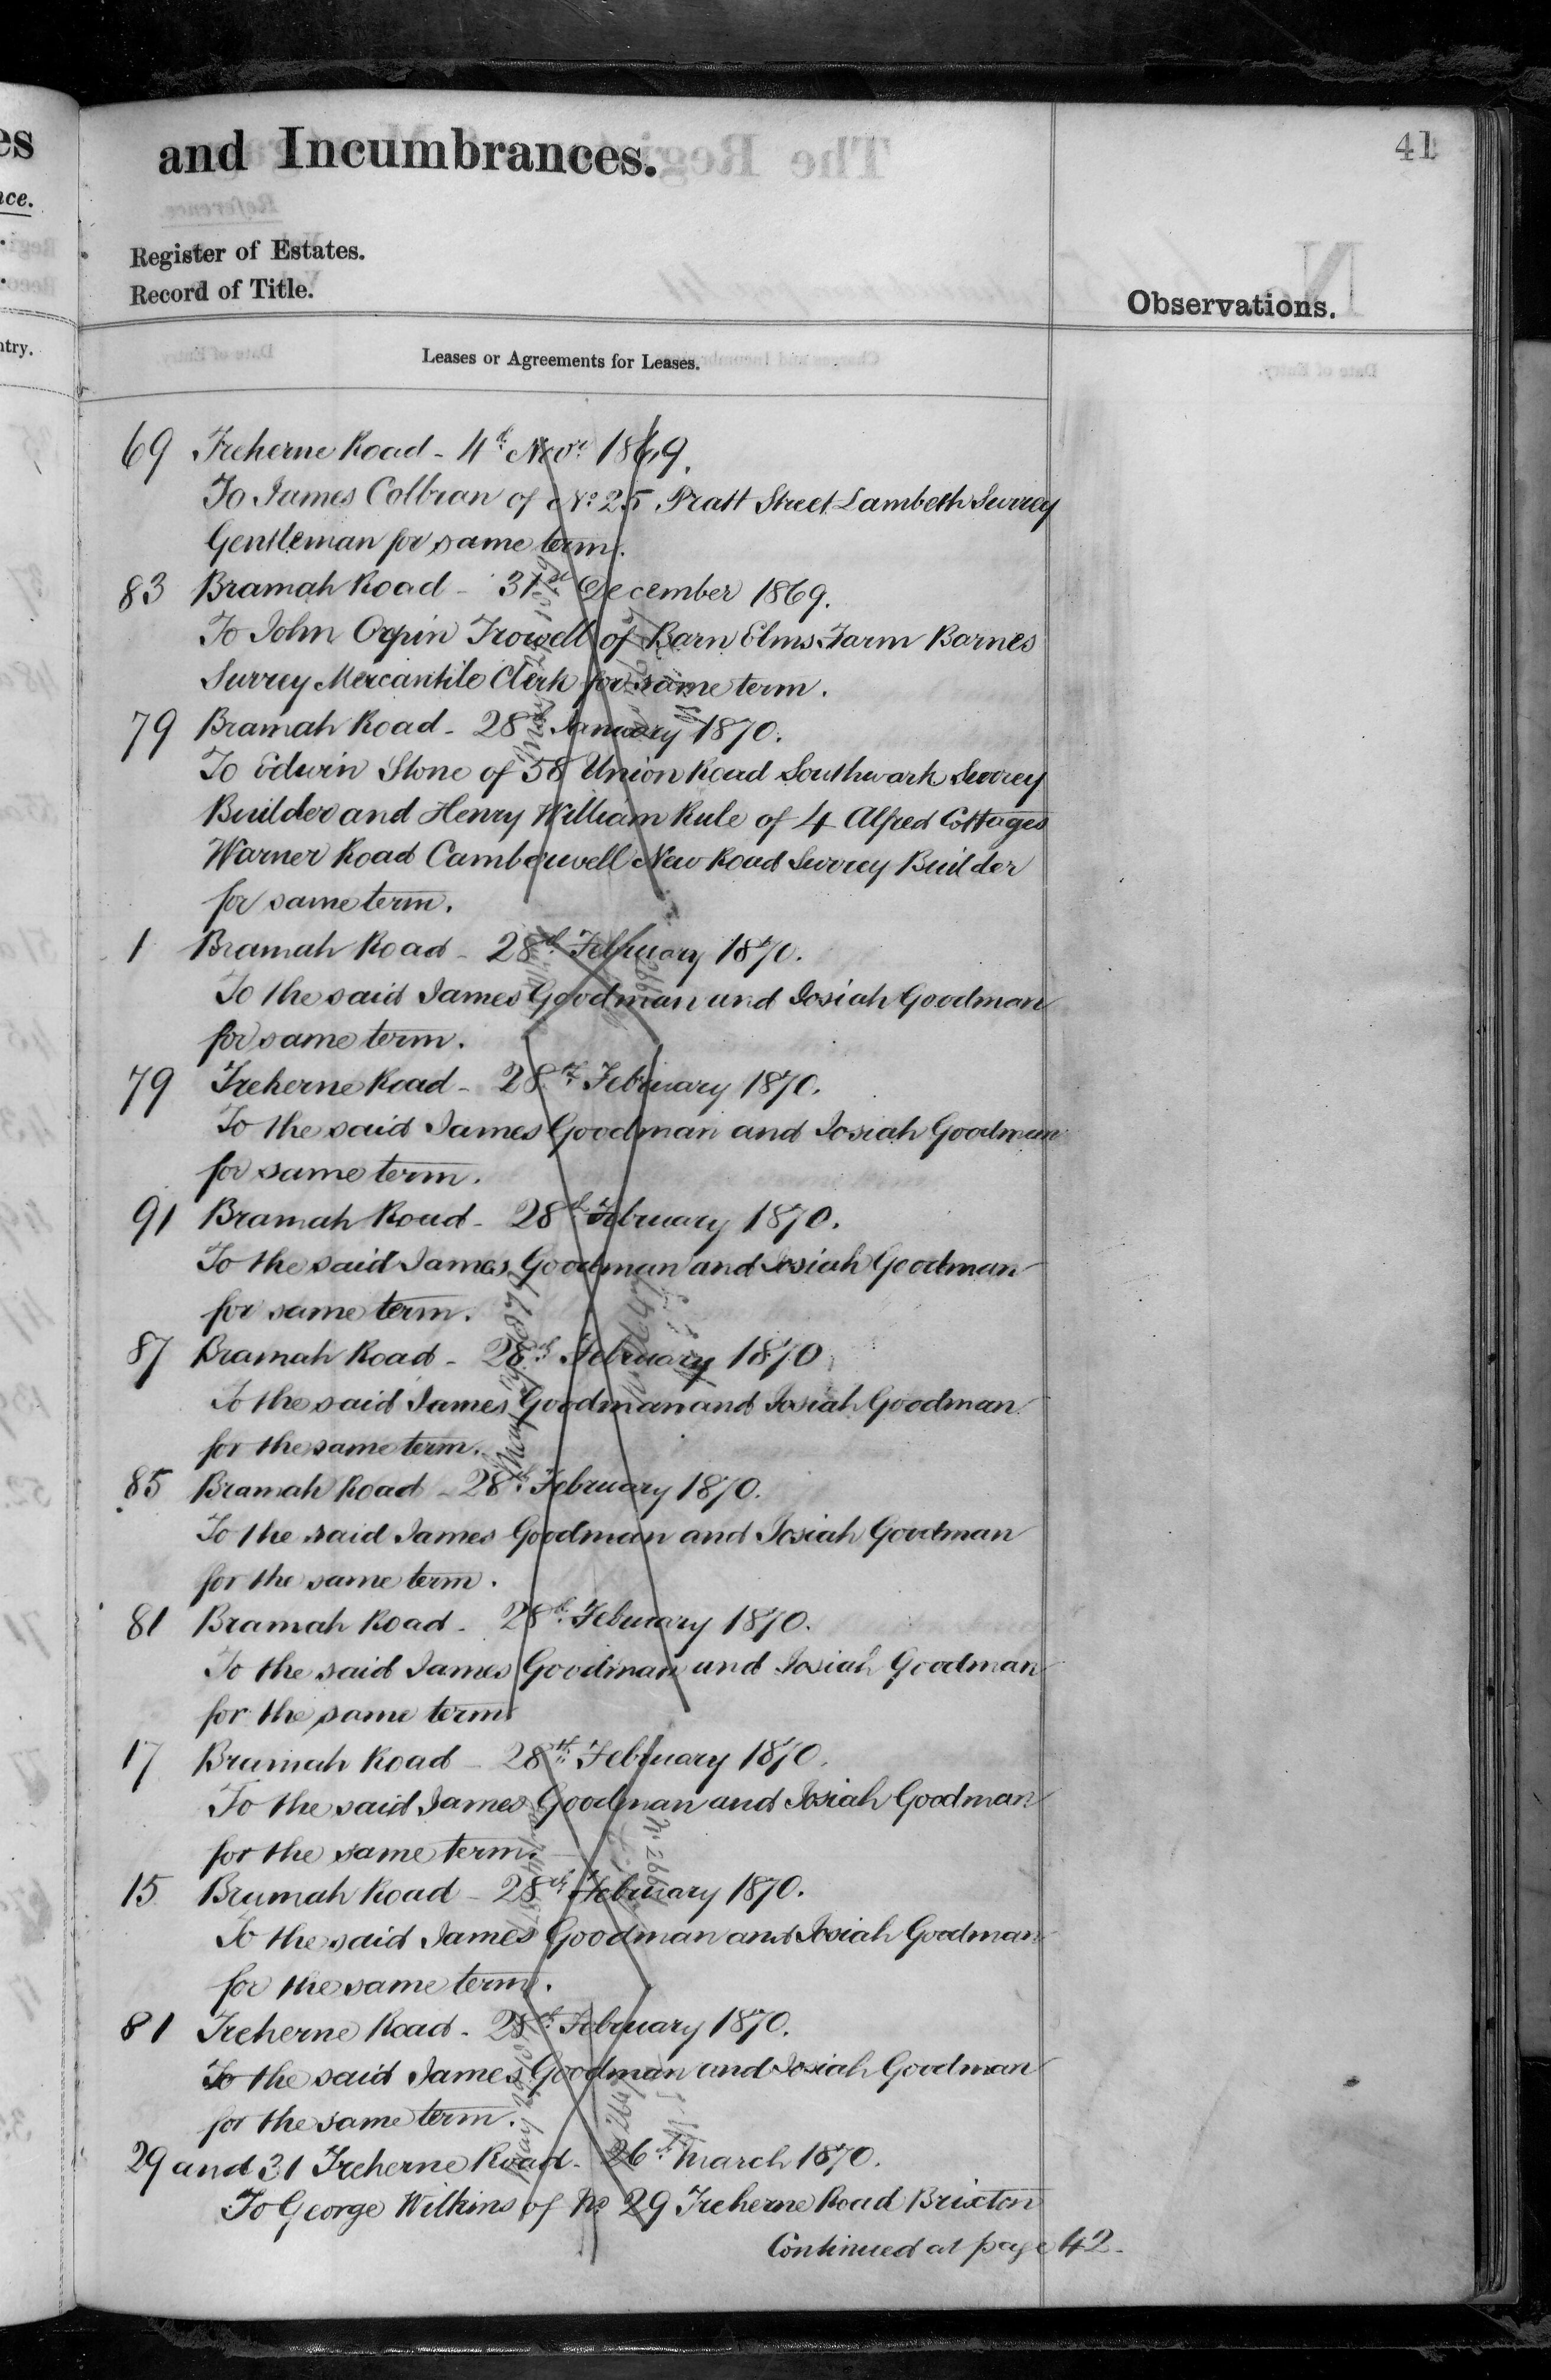 and Incumbrances.
41
Register of Estates.
Record of Title.
Observations.
Leases or Agreements for Leases.
69 Treherne Road - 4th Novr 1869.
To James Colbran of No 25 Pratt Street Lambeth Surrey
Gentleman for same term.
83 Bramah Road - 31st December 1869.
To John Orpin Trowell of Barn Elms Farm Barnes
Surrey Mercantile Clerk for same term.
79 Bramah Road - 28th January 1870.
To Edwin Stone of 58 Union Road Southwark Surrey
Builder and Henry William Rule of 4 Alfred Cottages
Warner Road Camberwell New Road Surrey Builder
for same term.
1 Bramah Road - 28th February 1870.
To the said James Goodman and Josiah Goodman
for same term.
79 Treherne Road - 28th February 1870.
To the said James Goodman and Josiah Goodman
for same term.
91 Bramah Road - 28th February 1870.
To the said James Goodman and Josiah Goodman
for same term.
87 Bramah Road - 28th February 1870
To the said James Goodman and Josiah Goodman
for the same term.
85 Bramah Road - 28th February 1870.
To the said James Goodman and Josiah Goodman
for the same term.
81 Bramah Road - 28th February 1870.
To the said James Goodman and Josiah Goodman
for the same term.
17 Bramah Road - 28th February 1870.
To the said James Goodman and Josiah Goodman
for the same term.
15 Bramah Road - 28th February 1870.
To the said James Goodman and Josiah Goodman
for the same term.
81 Treherne Road - 28th February 1870.
To the said James Goodman and Josiah Goodman
for the same term.
29 and 31 Treherne Road - 26th March 1870.
To George Wilkins of No 29 Treherne Road Brixton
Continued at page 42.